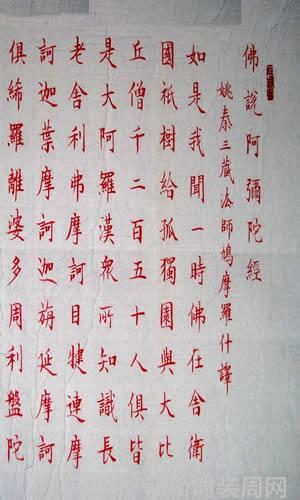 佛說阿彌陀經
姚秦三藏法師鳩摩羅什譯
如是我聞一時佛在舍衛
國祇樹給孤獨園與大比
丘僧千二百五十人俱皆
是大阿羅漢眾所知識長
老舍利弗摩訶目犍連摩
訶迦葉摩訶迦旃延摩訶
俱絺羅離婆多周利盤陀
时装周网